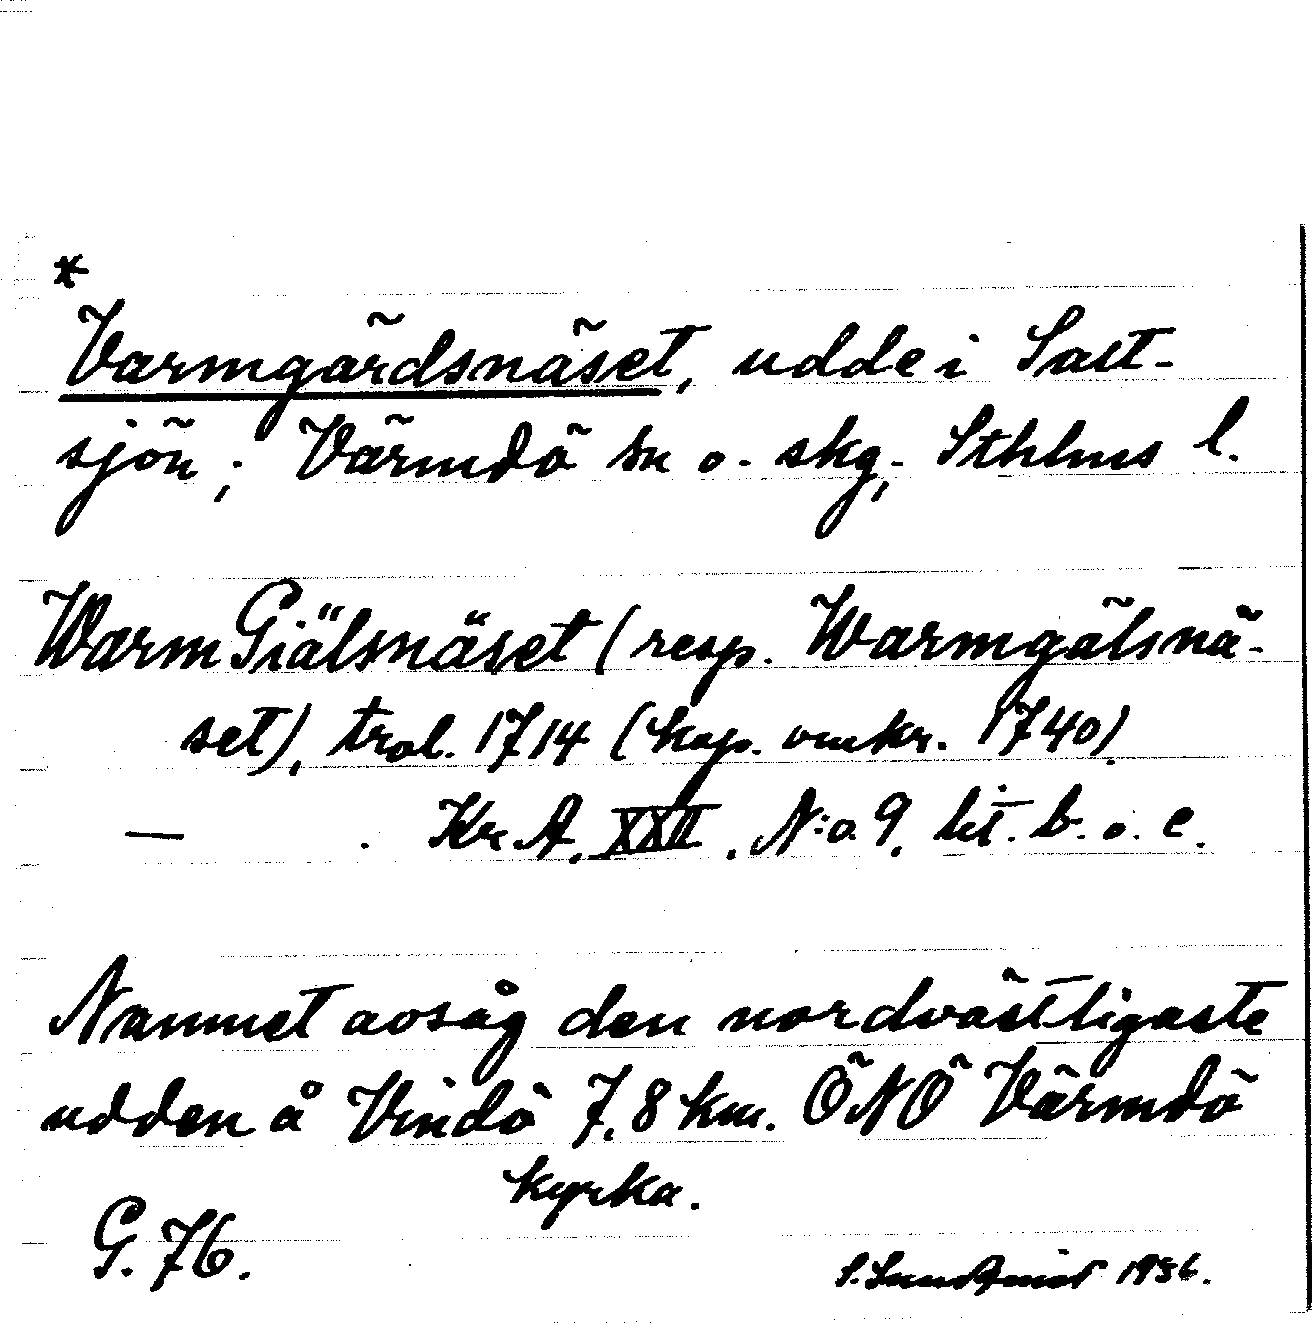 *
Varmgärdsnäset, udde i Salt-
sjön; Värmdö sn o. skg, Sthlms l.
WarmGiälsnäset (resp. Warmgälsnä-
set), trol. 1714 (kop. omkr. 1740).
— . Kr. A. XXII. N:o 9. lit. b. o. c.
Namnet avsåg den nordvästligaste
udden å Vindö 7,8 km. ÖNÖ Värmdö
kyrka.
G. 76.
1936.